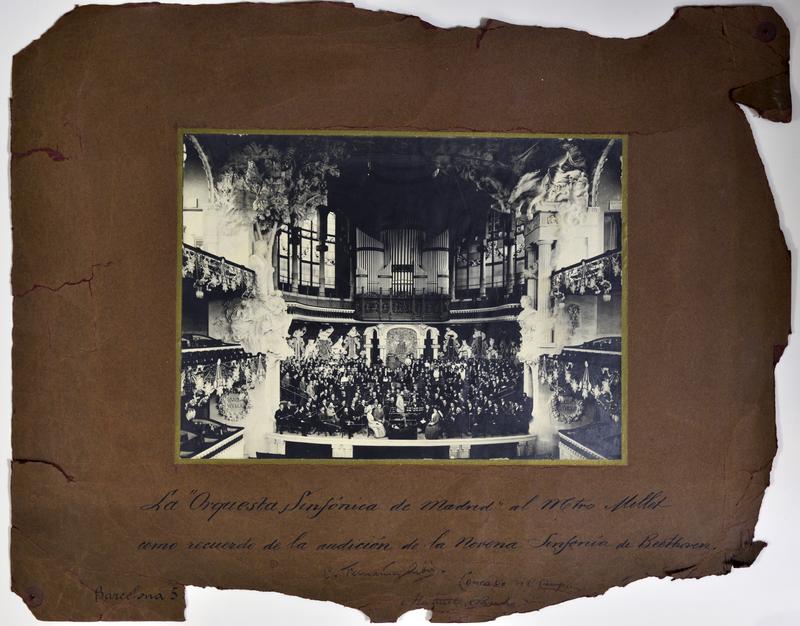 La "Orquesta Sinfónica de Madrid" al Mtro Millet
como recuerdo de la audición de la Novena Sinfonía de Beethoven.
Barcelona 5